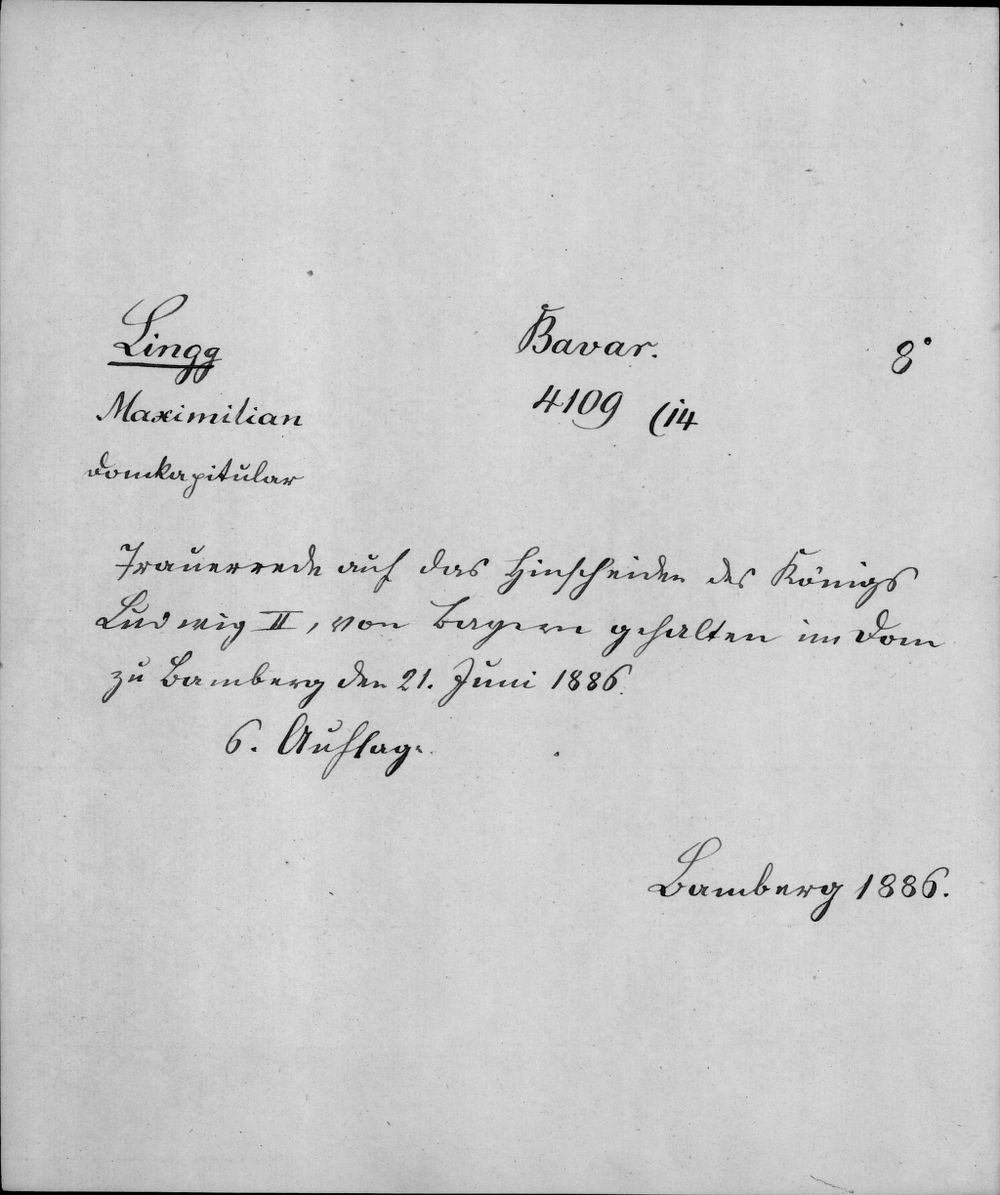 Lingg
Bavar.
8°
Maximilian
4109 (14
Domkapitular
Trauerrede auf das Hinscheiden des Königs
Ludwig II, von Bayern gehalten im Dom
zu Bamberg den 21. Juni 1886.
6. Auflage.
Bamberg 1886.